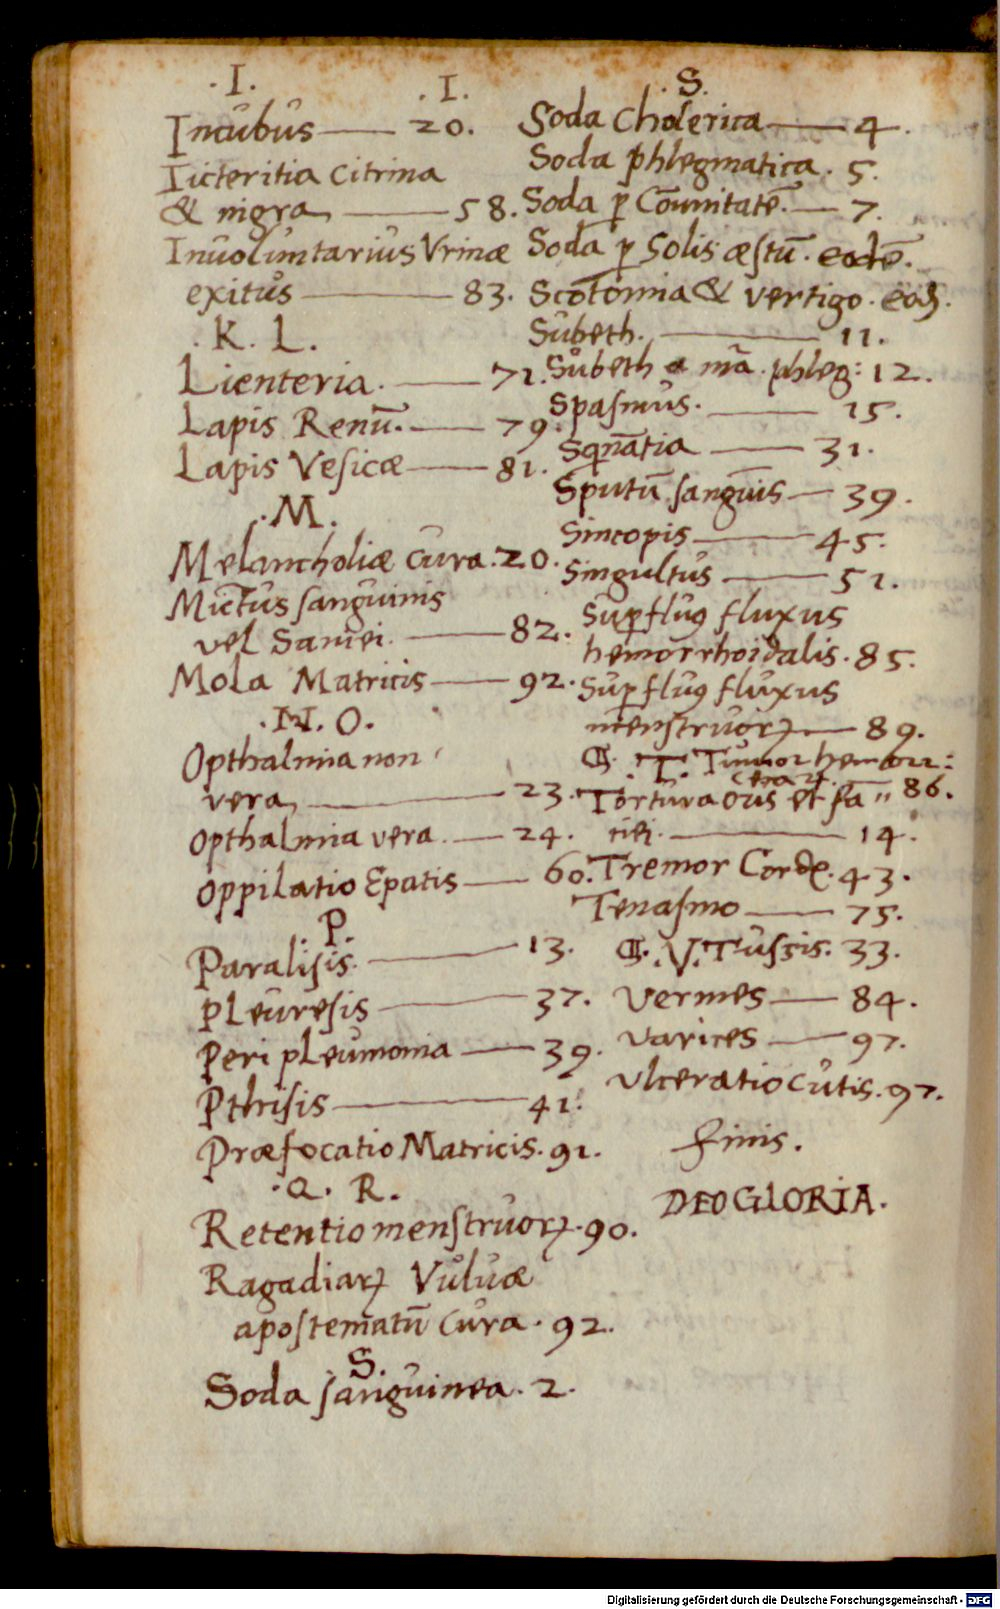 .I.
.I.
Incubus — 20.
Iicteritia Citrina
& nigra — 58.
Inuoluntarius Vrinæ
exitus — 83.
.K. L.
Lienteria. — 71.
Lapis Renū. — 79.
Lapis Vesicæ — 81.
.M.
Melancholiæ Cura. 20.
Mictus sanguinis
vel Saniei. — 82.
Mola Matricis — 92.
.N. O.
Opthalmia non
vera — 23.
Opthalmia vera. — 24.
Oppilatio Epatis — 60.
P.
Paralisis. — 13.
Pleuresis — 37.
Peri pleumonia — 39.
Pthisis — 41.
Præfocatio Matricis. 91.
.Q. R.
Retentio menstruoꝝ. 90.
Ragadiaꝝ Vuluæ
apostematū Cura. 92.
S.
Soda sanguinea. 2.
.S.
Soda Cholerica — 4.
Soda phlegmatica. 5.
Soda ꝑ Cōunitatē. — 7.
Soda ꝑ Solis æstū. eodē.
Scotomia & vertigo. eod.
Subeth. — 11.
Subeth a mā. phleg: 12.
Spasmus. — 15.
Sqnātia — 31.
Sputū sanguis — 39.
Sincopis — 45.
Singultus — 51.
Suꝑfluꝰ fluxus
hemorrhoidalis. 85.
Suꝑfluꝰ fluxus
menstruoꝝ — 89.
.T. Tumor hemorr:
86.
Tortura oris et fa"
tiei. — 14.
Tremor Cord. 43.
Tenasmo — 75.
.V. Tussis. 33.
Vermes — 84.
Varices — 97.
Vlceratio Cutis. 97.
Finis.
DEO GLORIA.
Digitalisierung gefördert durch die Deutsche Forschungsgemeinschaft - DFG